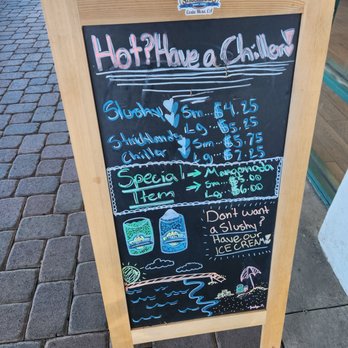 Hot? Have a Chiller!
Slushy Sm... $4.25
Lg... $5.25
Chiller Sm... $5.75
Lg... $7.25
Special → Mangonada
Item → Sm... $5.00
Lg... $6.00
Don't want
a Slushy?
Have our
ICE CREAM